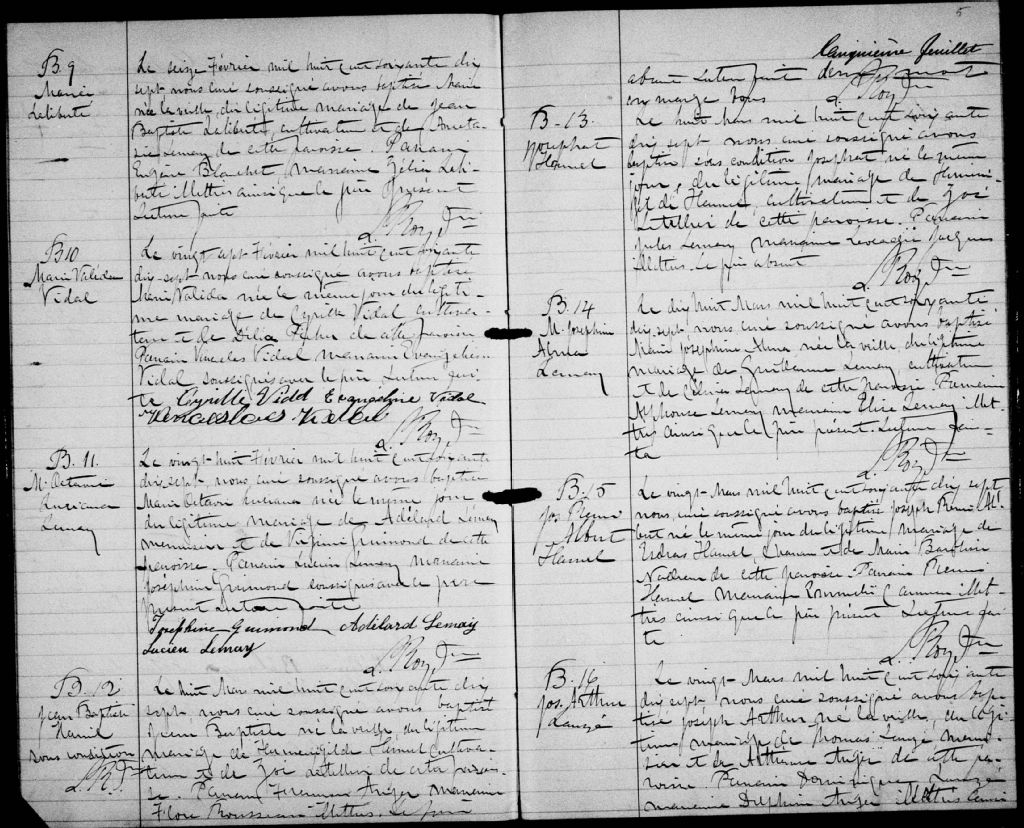 B. 9
Marie
Laliberté
Le seize Février mil huit cent soixante dix
sept nous curé soussigné avons baptisé Marie
née la veille, du légitime mariage de Jean
Baptiste Laliberté, cultivateur et de
Lemay de cette paroisse. Parrain
Eugène Blanchet, marraine Zélia Lali-
berté illettrés ainsi que le père présent
Lecture faite
L. Roy, Ptre
B 10
Marie Valida
Vidal
Le vingt sept Février mil huit cent soixante
dix-sept nous curé soussigné avons baptisé
Marie Valida née le même jour du légiti-
me mariage de Cyrille Vidal cultiva-
teur et de Délia de cette paroisse
Parrain Venceslas Vidal marraine Evangeline
Vidal soussignés avec le père. Lecture fai-
te Cyrille Vidal Evangeline Vidal
Venceslas Vidal
L. Roy, Ptre
B. 11.
M. Octavie
Lemay
Le vingt-huit Février mil huit cent soixante
dix sept, nous curé soussigné avons baptisé
Marie Octavie née le même jour
du légitime mariage de Adélard Lemay
et de Virginie Guimond de cette
paroisse. Parrain Lucien Lemay marraine
Joséphine Guimond soussignés avec le père
présent Lecture faite
Josephine Guimond Adélard Lemay
Lucien Lemay
L. Roy, Ptre
B. 12
Jean Baptiste
Hamel
sous condition
L. R. Ptre
Le huit Mars mil huit cent soixante dix
sept, nous curé soussigné avons baptisé
Jean Baptiste né la veille, du légitime
mariage de Herménégilde Hamel cultiva-
teur et de Zoé Letellier de cette parois-
se. Parrain Auger marraine
Flore Rousseau illettrés. Le père
5
Cinquième feuillet
absent Lecture faite
en marge bons
L. Roy Ptre
B-13.
Josaphat
Hamel
Le huit Mars mil huit cent soixante
dix sept nous curé soussigné avons
baptisé sous condition Josaphat né le même
jour, du légitime mariage de Hermené-
gilde Hamel, cultivateur et de Zoé
Letellier de cette paroisse. Parrain
Jules Lemay marraine Léocadie Jacques
illettrés. Le père absent
L. Roy Ptre
B. 14
M. Josephine
Alma
Lemay
Le dix huit Mars mil huit cent soixante
dix sept nous curé soussigné avons baptisé
Marie Joséphine Alma, née la veille du légitime
mariage de Guillaume Lemay, cultivateur
et de Lemay de cette paroisse Parrain
Alphonse Lemay marraine Elise Lemay illet-
trés ainsi que le père présent. Lecture fai-
te
L. Roy Ptre
B. 15
Jos. Rémi
Albert
Hamel
Le vingt Mars mil huit cent soixante dix sept
nous, curé soussigné avons baptisé Joseph Rémi Al-
bert né le même jour du légitime mariage de
Hamel, et de Marie
de cette paroisse Parrain Rémi
Hamel marraine illet-
trés ainsi que le père présent Lecture fai-
te
L. Roy, Ptre
B. 16
Jos. Arthur
Lauzé
Le vingt Mars mil huit cent soixante
dix sept, nous curé soussigné avons bap-
tisé Joseph Arthur, né la veille, du légi-
time mariage de Thomas Lauzé
et de Auger de cette pa-
roisse Parrain Dominique Lauzé
marraine Delphine Auger illettrés ainsi